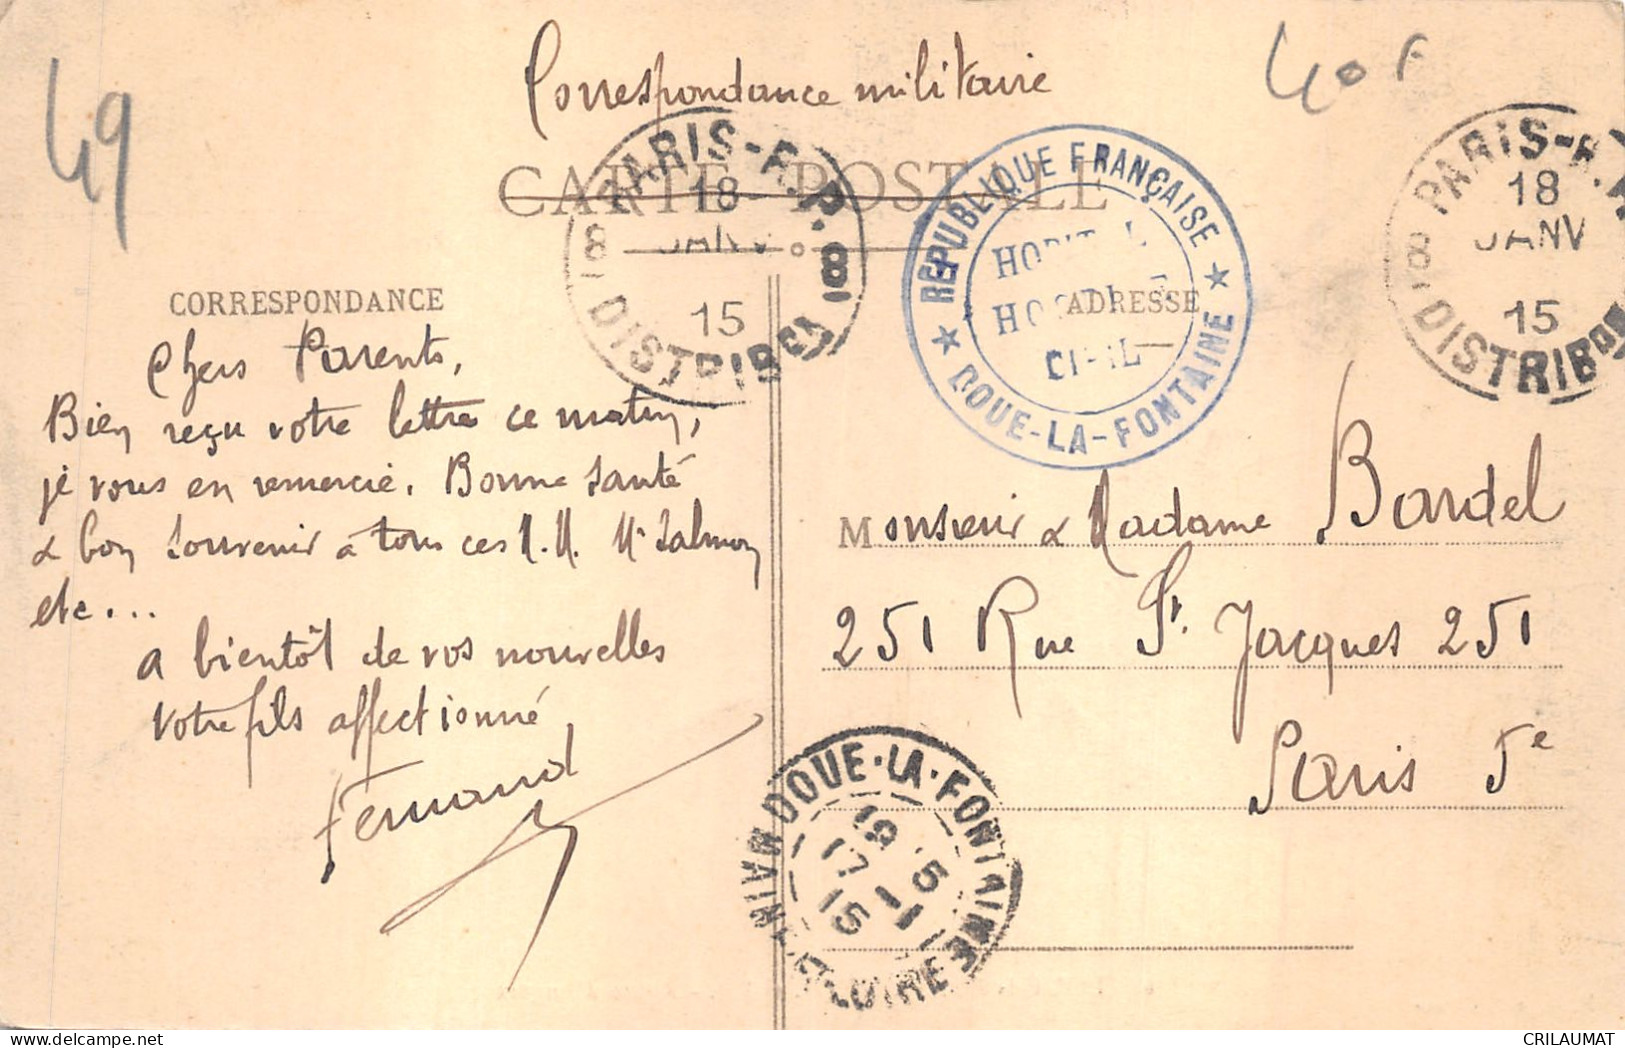 49
Correspondance militaire
40 F
CARTE POSTALE
PARIS-R.P.
18
JANV
15
DISTRIBON
RÉPUBLIQUE FRANÇAISE
HOPITAL
CIVIL
★ DOUE-LA-FONTAINE ★
PARIS-R.P.
18
JANV
15
DISTRIBON
CORRESPONDANCE
ADRESSE
Chers Parents,
Bien reçu votre lettre ce matin,
je vous en remercie. Bonne santé
& bon souvenir à tous ces M.M. Mr Salmon
etc...
A bientôt de vos nouvelles
Votre fils affectionné
Fernand
Monsieur & Madame Bardel
251 Rue St. Jacques 251
Paris 5e
DOUE-LA-FONTAINE
17 - 1
15
MAINE-&-LOIRE
CRILAUMAT